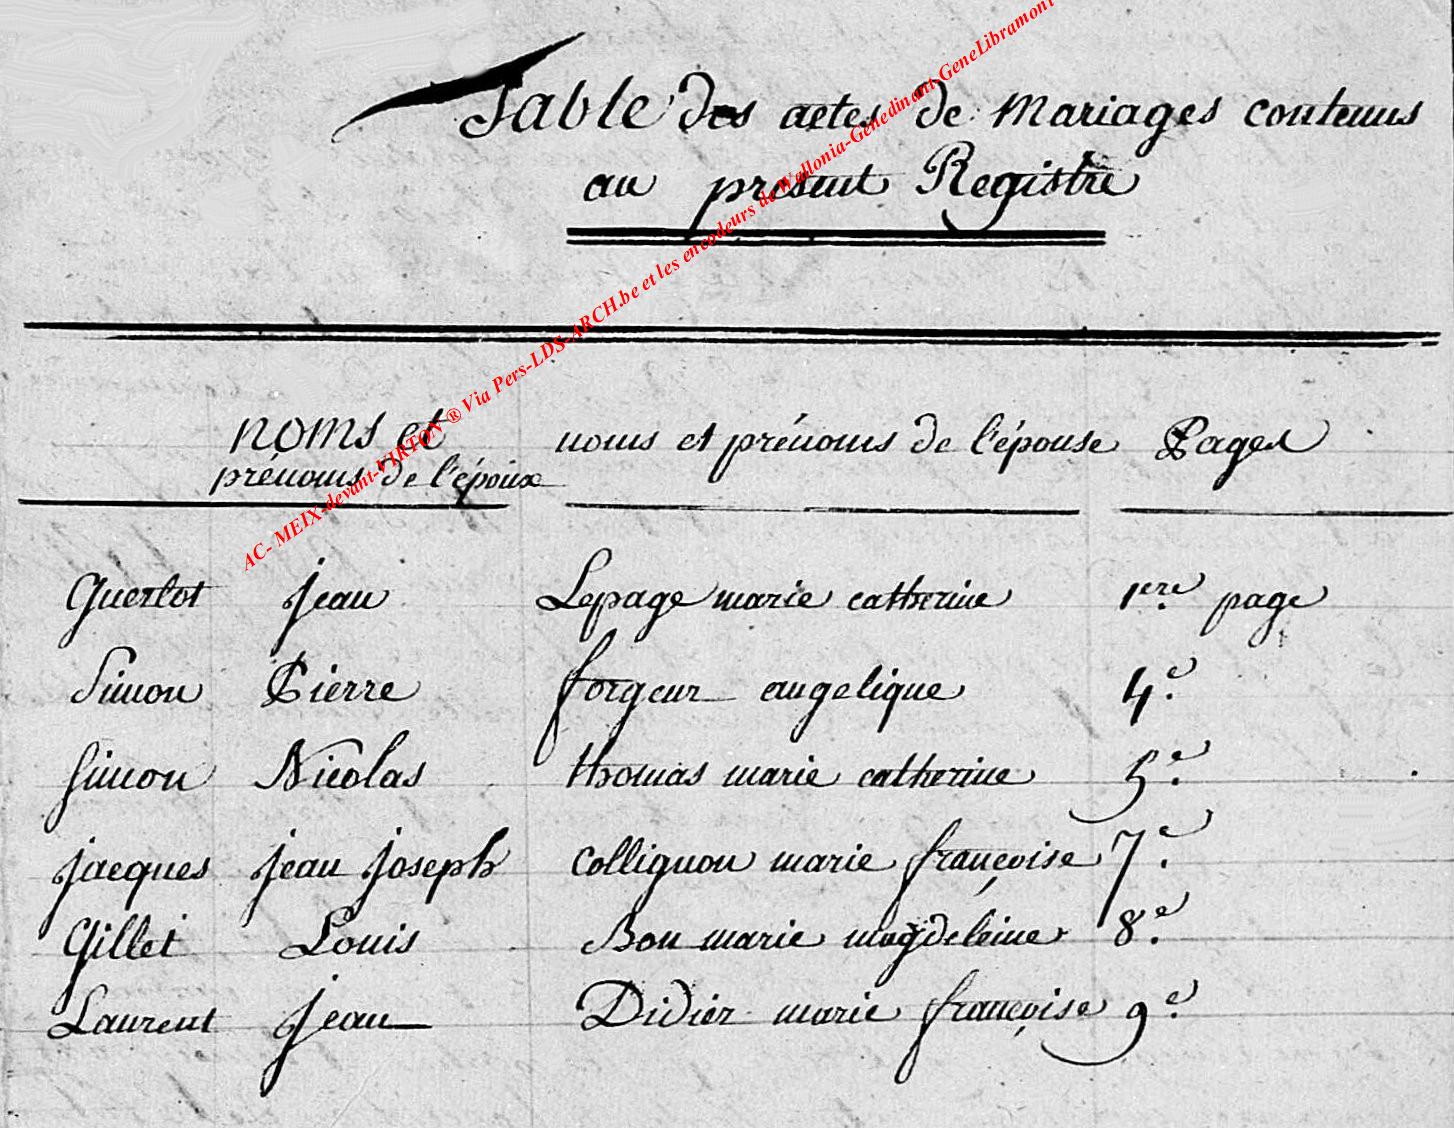 Table des actes de Mariages contenus
au present Registre
noms et
prénoms de l'époux
noms et prénoms de l'épouse
Pages
Guerlot Jean Lepage marie catherine 1ere. page
Simon Pierre forgeur angelique 4e.
Simon Nicolas thomas marie catherine 5e.
jacques jean joseph collignon marie françoise 7e.
Gillet Louis Bon marie magdeleine 8e.
Laurent jean Didier marie françoise 9e.
AC- MEIX-devant-VIRTON ® Via Pers-LDS-ARCH.be et les encodeurs de Wallonia-Genedinant-GeneLibramont